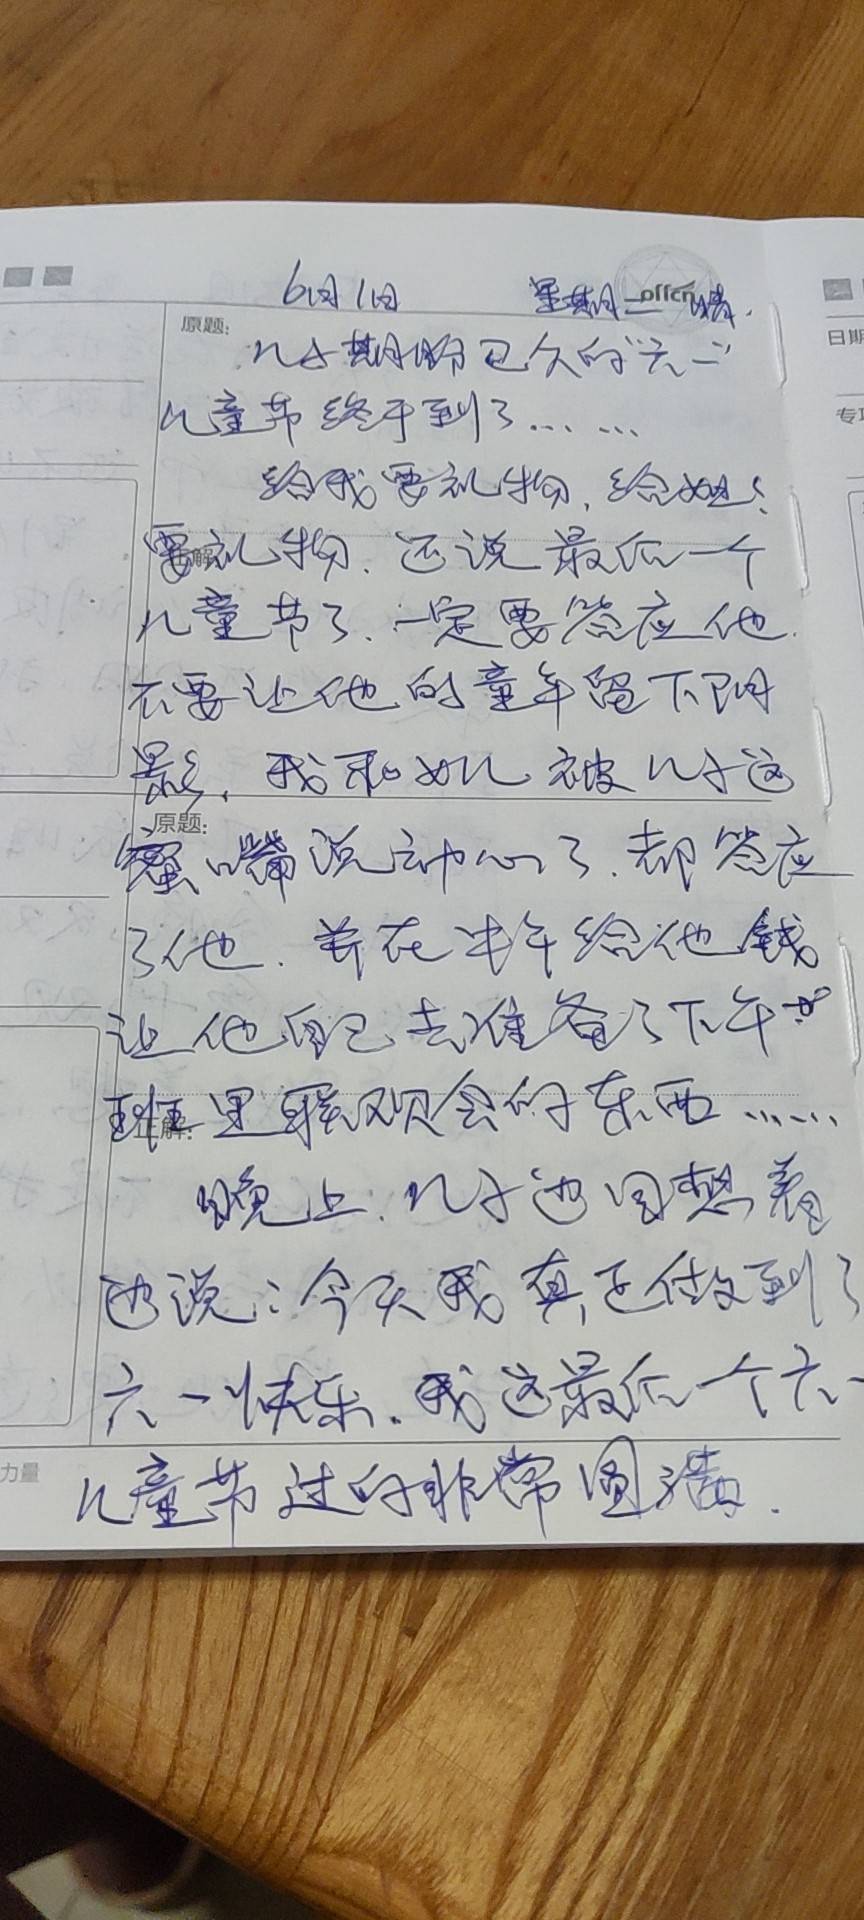 6月1日 星期二 晴.
offcn
日期
原题:
儿子期盼已久的“六一”
专项
儿童节终于到了……
给我要礼物,给姐姐
要礼物.还说最后一个
正解:
儿童节了.一定要答应他.
不要让他的童年留下阴
影.我和女儿被儿子这
原题:
蜜嘴说动心了.都答应
了他.并在中午给他钱
让他自己去准备了下午
班里联欢会的东西……
正解:
晚上.儿子边回想着
边说:今天我真正做到了
六一快乐.我这最后一个六一
力量
儿童节过的非常圆满.